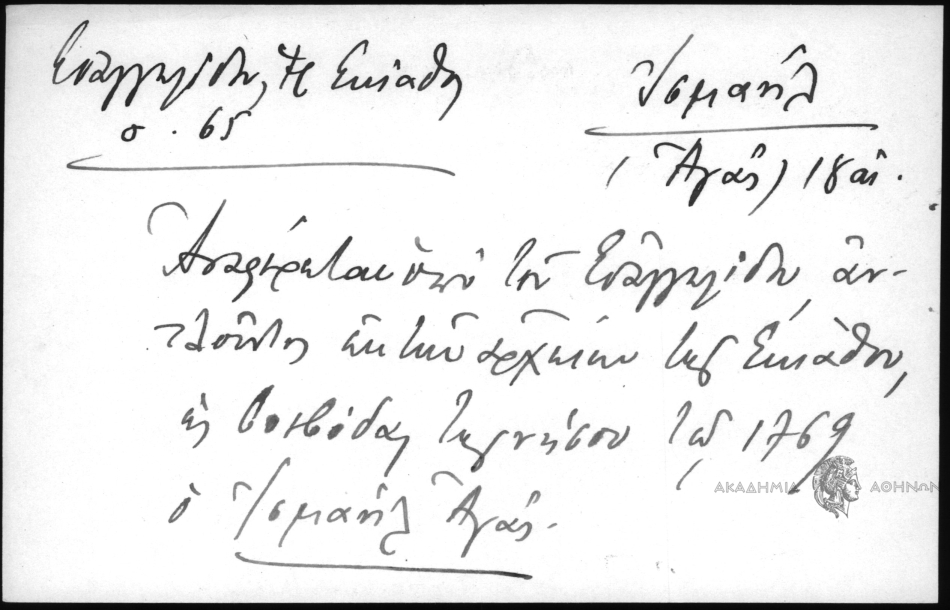 Εὐαγγελίδη, Ἡ Σκίαθος
σ. 65
Ἰσμαήλ
(Ἀγᾶς) 18 αἰ.
Ἀναφέρεται ὑπὸ τοῦ Εὐαγγελίδη, ἀν-
τλοῦντος ἐκ τῶν ἀρχείων τῆς Σκιάθου,
ὡς βοεβόδας τῆς νήσου τῷ 1769
ὁ Ἰσμαήλ Ἀγᾶς.
ΑΚΑΔΗΜΙΑ ΑΘΗΝΩΝ